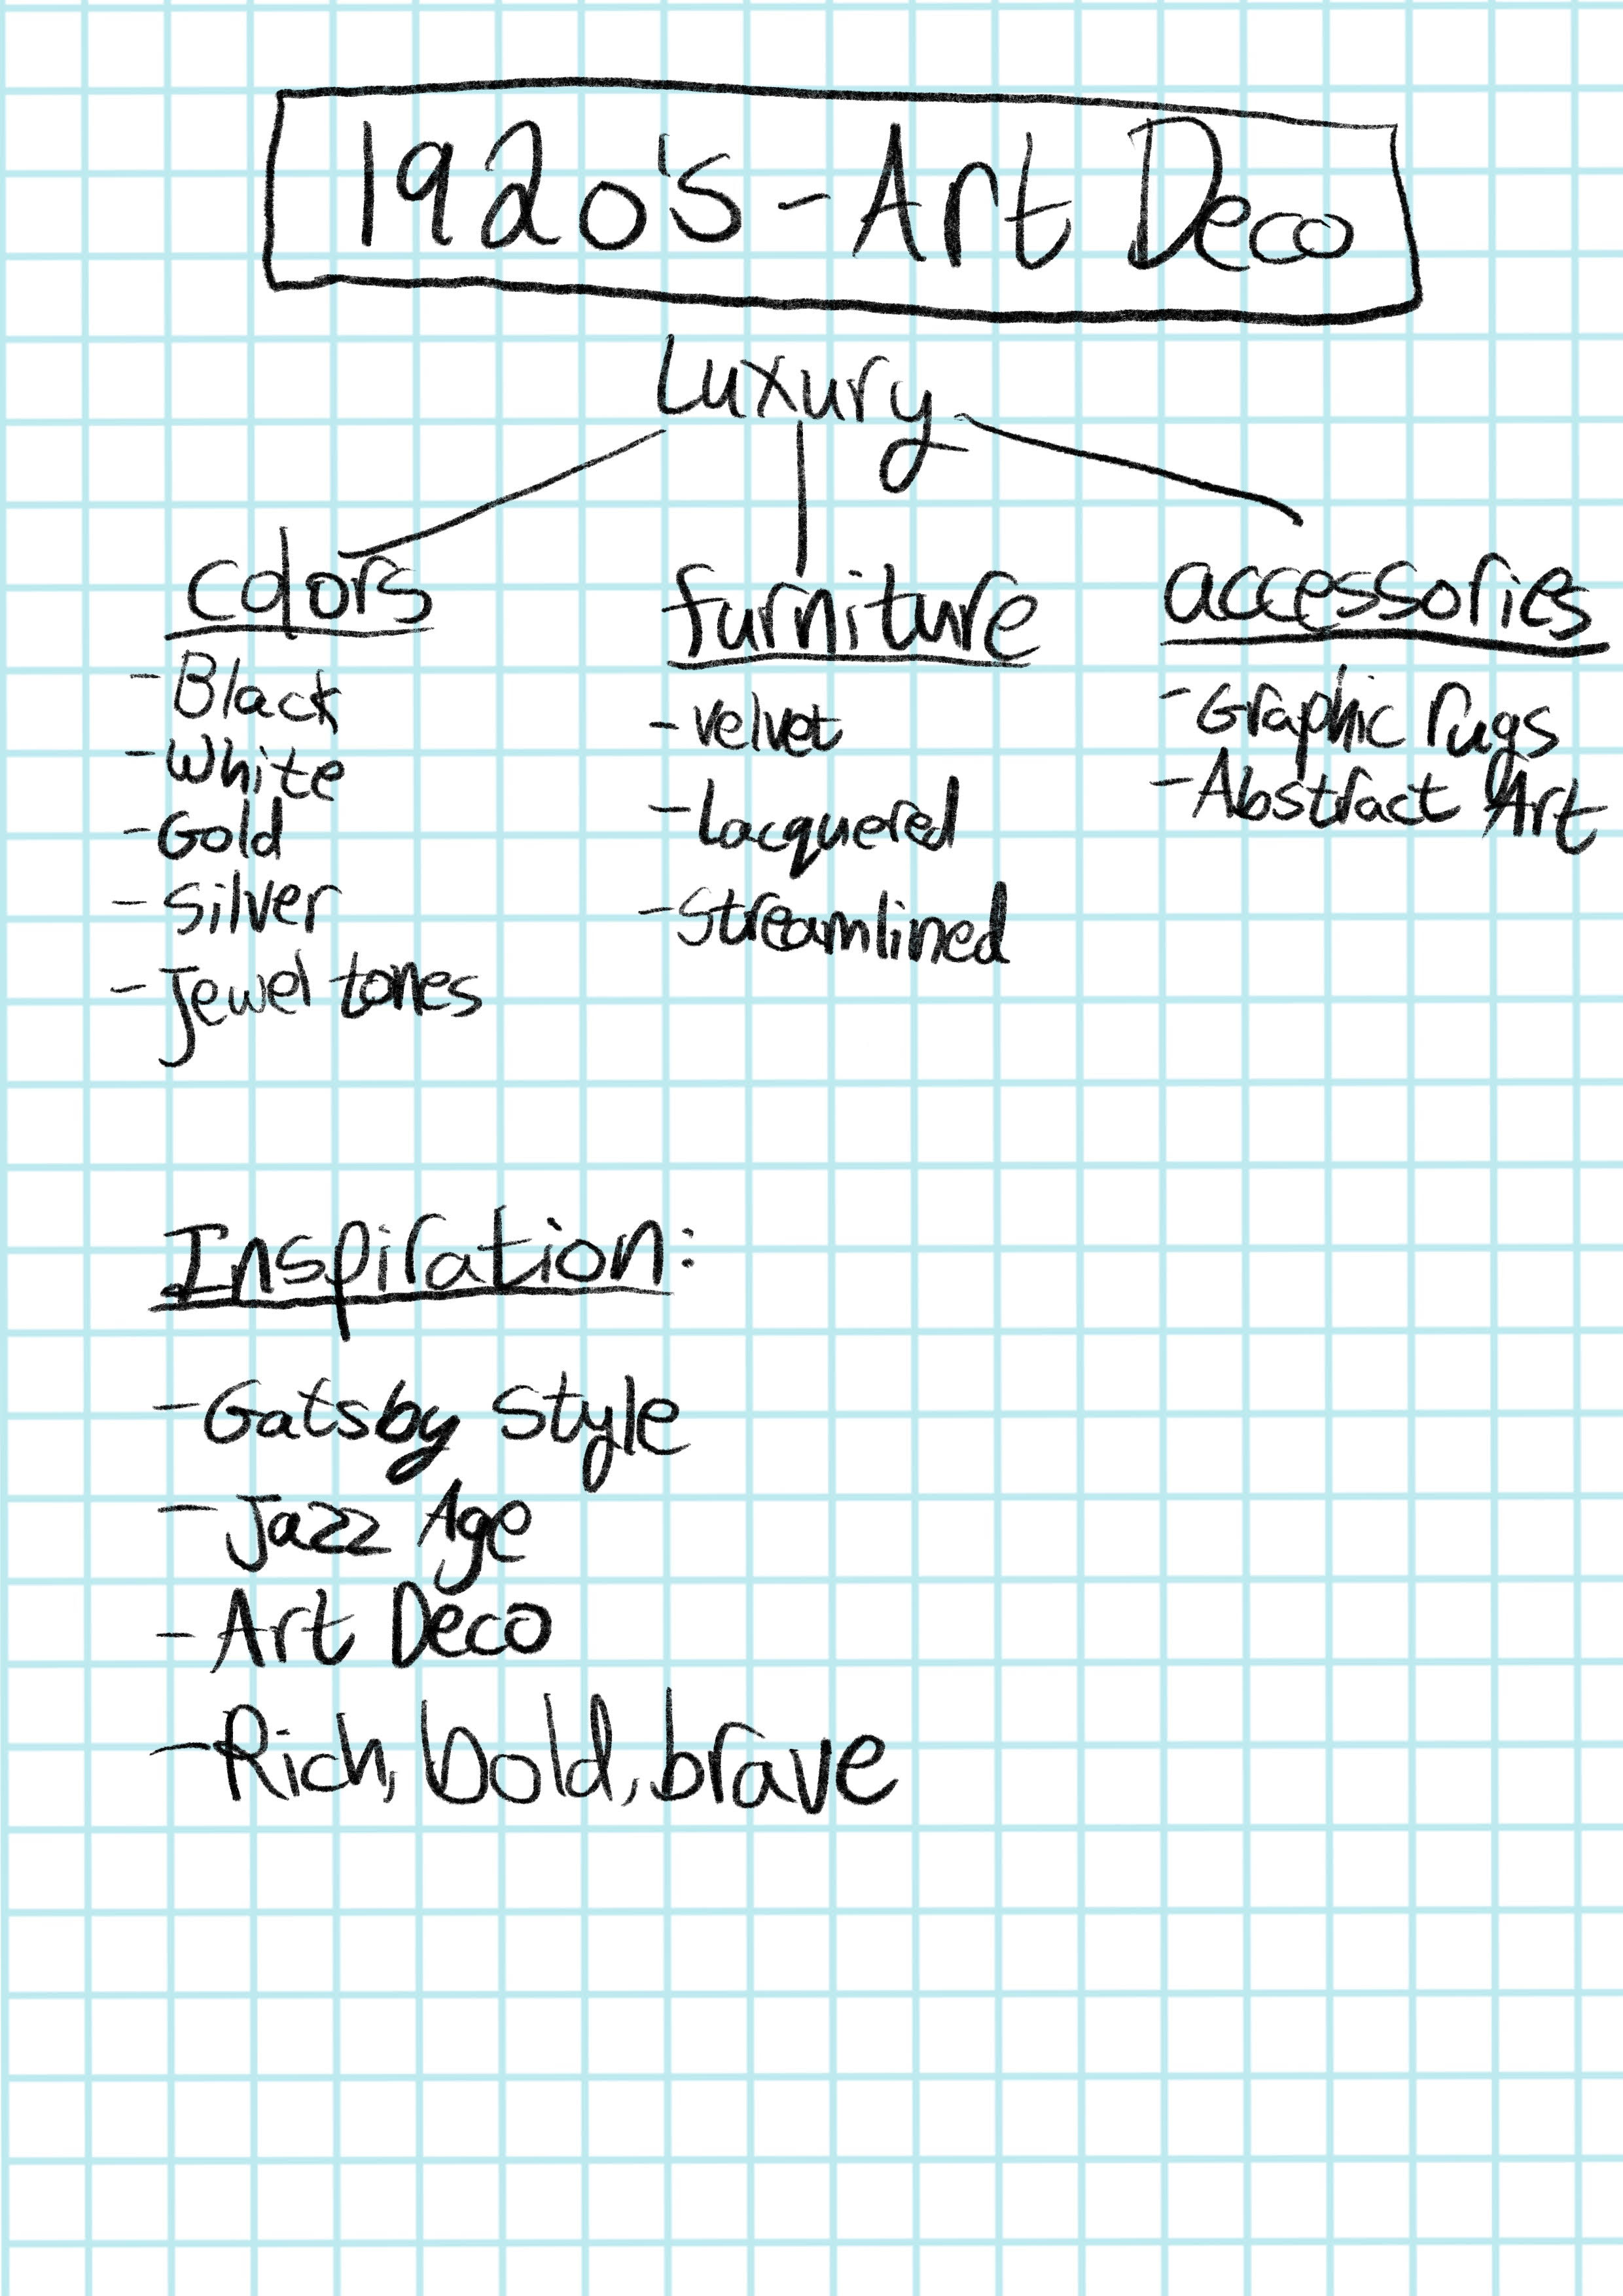 1920's - Art Deco
Luxury
colors
- Black
- White
- Gold
- Silver
- Jewel tones
furniture
- Velvet
- Lacquered
- Streamlined
accessories
- Graphic rugs
- Abstract Art
Inspiration:
- Gatsby Style
- Jazz Age
- Art Deco
- Rich, bold, brave